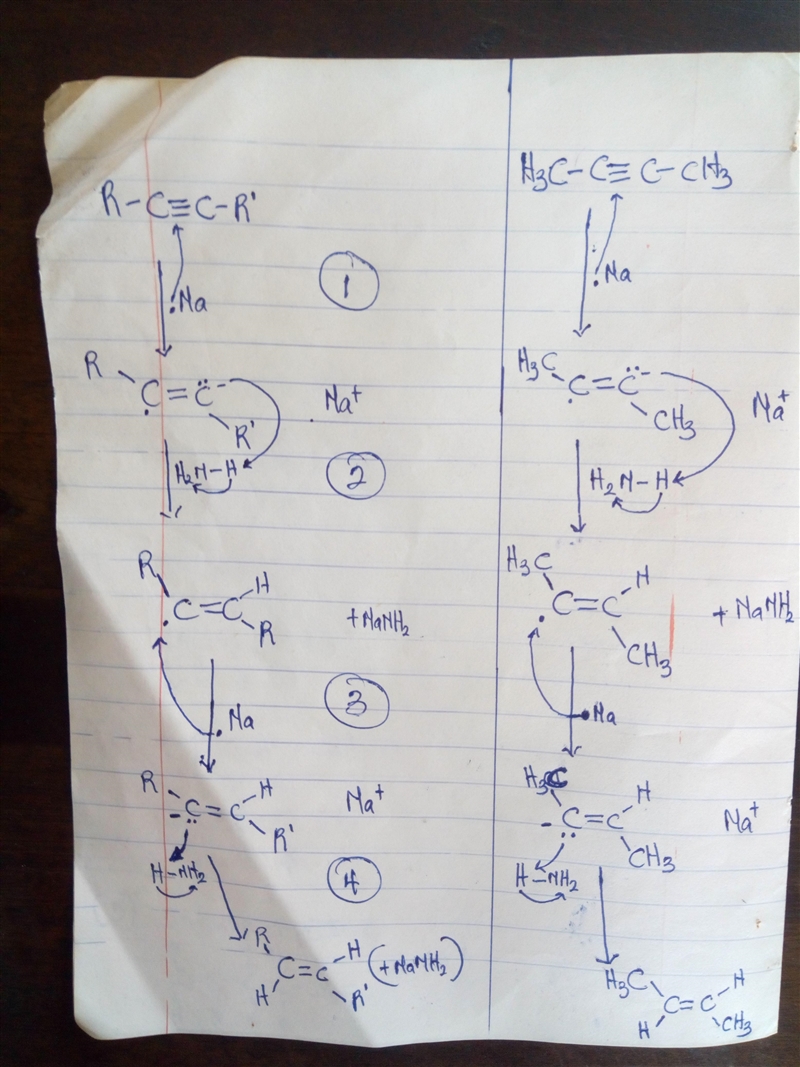 R-C≡C-R'
·Na
1
R
C=C̈-
R'
Na+
H2N-H
2
R
·C=C
H
R
+NaNH2
·Na
3
R
-C̈=C
H
R'
Na+
H-NH2
4
R
H
C=C
H
R'
(+NaNH2)
H3C-C≡C-CH3
·Na
H3C
C=C̈-
CH3
Na+
H2N-H
H3C
·C=C
H
CH3
+NaNH2
·Na
H3C
-C̈=C
H
CH3
Na+
H-NH2
H3C
H
C=C
H
CH3